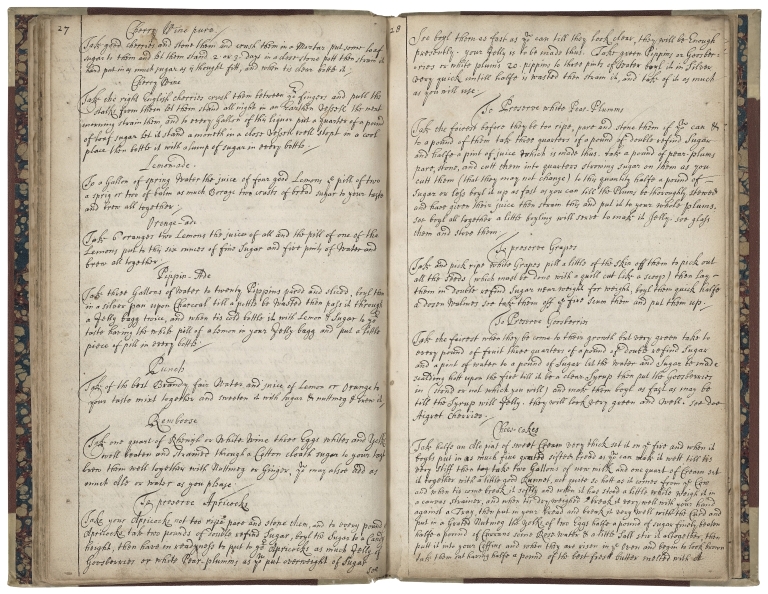 27
Cherry Wine pure
Take good cherries and stone them and crush them in a Mortar put some loaf
sugar to them and let them stand 2 or 3 days in a close stone pott then strain it
and put in as much sugar as is thought fitt, and when tis clear bottle it
Cherry Wine
Take the right English cherries crush them between yr fingers and pull the
stalks from them let them stand all night in an Earthen Vessell the next
morning strain them, and to every Gallon of the liquor put a quarter of a pound
of loaf sugar let it stand a month in a close Vessell well stopt in a cool
place then bottle it with a lump of sugar in every bottle
Lemonade
To a Gallon of spring Water the juice of four good Lemons ye pill of two
a sprig or two of balm as much Borage two crusts of bread sugar to your taste
and brew all together
Orange-Ade
Take 6 oranges two Lemons the juice of all and the pill of one of the
Lemons put to this six ounces of fine Sugar and five pints of Water and
brew all together
Pippin-Ade
Take three Gallons of Water to twenty Pippins pared and sliced, boyl them
in a silver pan upon Charcoal till a pottle be Wasted then pass it through
a Jelly bagg twice, and when tis cold bottle it with Lemon & Sugar to yr
taste having the white pill of a Lemon in your Jelly bagg and put a little
piece of pill in every bottle
Punch
Take of the best Brandy fair Water and juice of Lemon or Orange to
your taste mixt together and sweeten it with Sugar & nuttmeg & brew it
Remboose
Take one quart of Rhenish or White Wine three Eggs whites and Yolks
well beaten and strained through a Cotton cloath sugar to your taste
brew them well together with Nuttmeg or Ginger, ye may also add as
much Ale or water as you please
To preserve Apricocks
Take your Apricocks not too ripe pare and stone them, and to every pound of
Apricocks take two pounds of double refind Sugar, boyl the Sugar to a Candy
height, then have in readyness to put to ye Apricocks as much Jelly of
Goosberries or white Pear-plumms as ye put overweight of Sugar
28
soe boyl them as fast as ye can till they look clear, they will be Enough
presently. your Jelly is to be made thus. Take green Pippins or Goosber-
ries or white plums 20 pippins to three pints of Water boyl it in Silver
very quick untill halfe is wasted then strain it, and take of it as much
as you will use
To Preserve white Pear-Plumms
Take the fairest before they be too ripe, pare and stone them if ye can &
to a pound of them take three quarters of a pound of double refind Sugar
and halfe a pint of juice which is made thus. take a pound of pear plums
pare, stone, and cutt them into quarters strowing sugar on them as you
cutt them (that they may not change) to this quantity halfe a pound of
Sugar or less boyl it up as fast as you can till the Plums be thoroughly stewed
and have given their juice then strain this and put it to your whole plums.
soe boyl all together a little boyling will serve to make it Jelly. soe glass
them and store them
To preserve Grapes
Take and pick ripe White Grapes pill a little of the skin off them to pick out
all the seeds, (which must be done with a quill cutt like a scoop) then lay
them in double refind Sugar near weight for weight, boyl them quick halfe
a dozen Walmes soe take them off ye fire scum them and put them up.
To Preserve Goosberries
Take the fairest when they be come to them growth but very green take to
every pound of fruit three quarters of a pound of double refind Sugar
and a pint of water to a pound of Sugar let the water and Sugar be made
scalding hott upon the fire till it be a clean Syrup then put the goosberries
in (stoned or not which you will) and make them boyl as fast as may be
till the Syrup will Jelly. they will look very green and well. soe doe
Cherries.
Cheescakes
Take halfe an Ale pint of sweet Cream very thick set it on ye fire and when it
boyls put in as much fine grated sifted bread as ye can make it well till tis
very stiff then take two Gallons of new milk and one quart of Cream set
it together with a little good Runnet, not quite so hott as it comes from ye Cow
and when tis come break it softly and when it has stood a little while weigh it in
a canvas strainer, and when tis dry weighed break it very well with your hand
against a Tray, then put in your bread and break it very well with the Curd and
put in a Grated Nutmeg the yolks of two Eggs halfe a pound of sugar finely beaten
halfe a pound of Currans some Rose-water & a little Salt stir it altogether, then
put it into your Coffins and when they are risen in ye Oven and begin to look brown
take them out having halfe a pound of the best fresh butter melted with